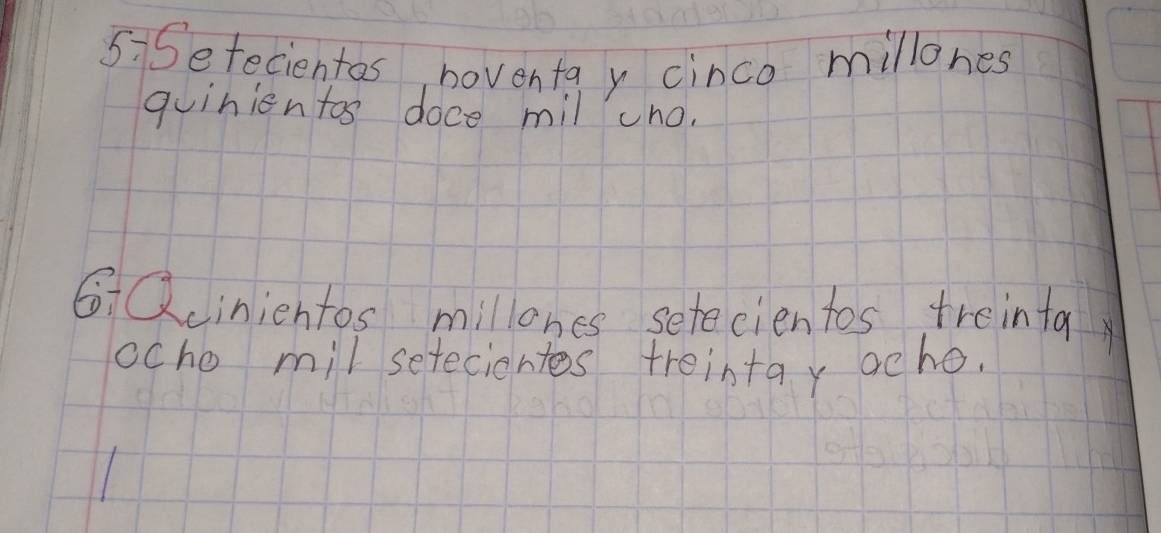 5-Setecientos noventa y cinco millones
quinientos doce mil uno.
6-Quinientos millones setecientos treinta y
ocho mil setecientos treinta y ocho.